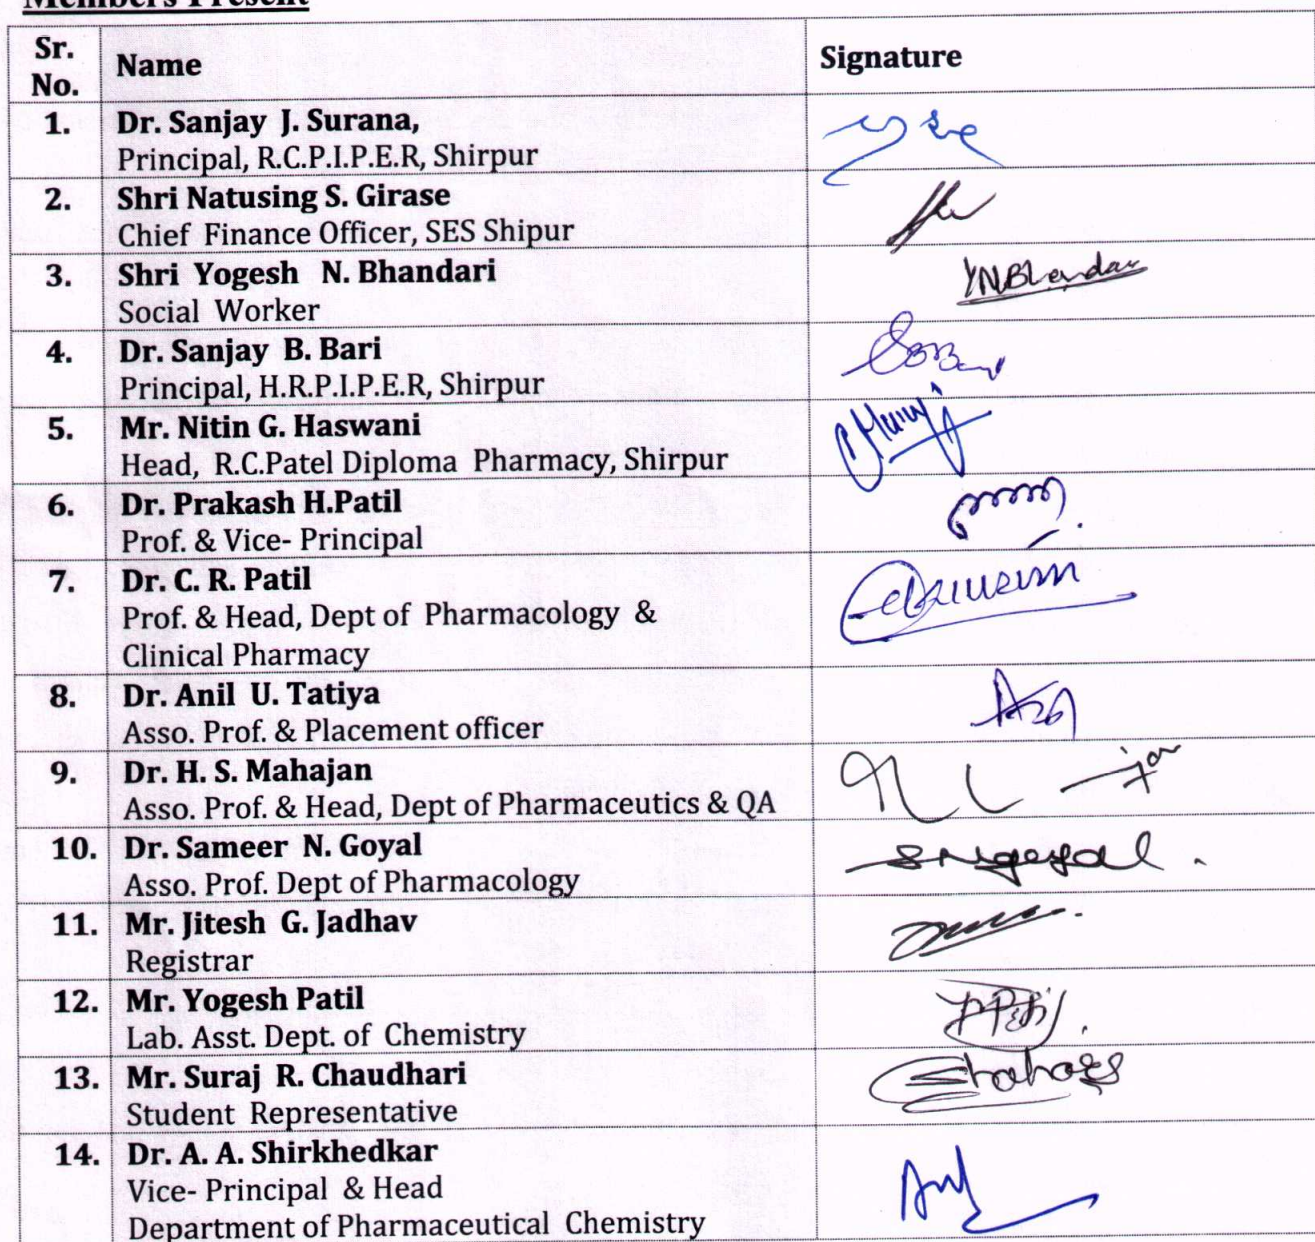 Members Present
Sr. No. Name Signature
1. Dr. Sanjay J. Surana,
Principal, R.C.P.I.P.E.R, Shirpur
2. Shri Natusing S. Girase
Chief Finance Officer, SES Shipur
3. Shri Yogesh N. Bhandari
Social Worker
YNBhandari
4. Dr. Sanjay B. Bari
Principal, H.R.P.I.P.E.R, Shirpur
5. Mr. Nitin G. Haswani
Head, R.C.Patel Diploma Pharmacy, Shirpur
6. Dr. Prakash H.Patil
Prof. & Vice- Principal
7. Dr. C. R. Patil
Prof. & Head, Dept of Pharmacology &
Clinical Pharmacy
8. Dr. Anil U. Tatiya
Asso. Prof. & Placement officer
9. Dr. H. S. Mahajan
Asso. Prof. & Head, Dept of Pharmaceutics & QA
10. Dr. Sameer N. Goyal
Asso. Prof. Dept of Pharmacology
SNgoyal
11. Mr. Jitesh G. Jadhav
Registrar
12. Mr. Yogesh Patil
Lab. Asst. Dept. of Chemistry
13. Mr. Suraj R. Chaudhari
Student Representative
14. Dr. A. A. Shirkhedkar
Vice- Principal & Head
Department of Pharmaceutical Chemistry